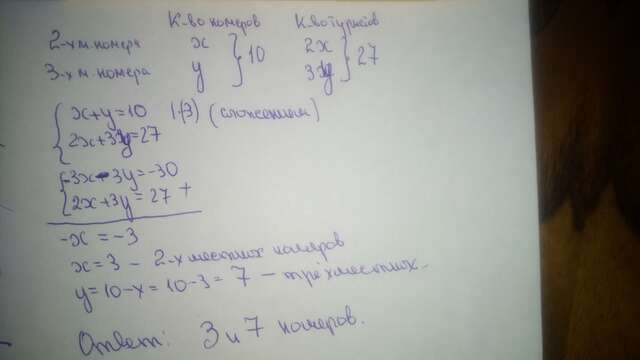 К-во номеров К-во туристов
2-х м. номера x } 10 2x } 27
3-х м. номера y 3y
{ x+y=10 |·(-3) (сложением)
2x+3y=27
{ -3x-3y=-30
2x+3y=27 +
-x = -3
x = 3 - 2-х местных номеров
y=10-x=10-3=7 - трёхместных.
Ответ: 3 и 7 номеров.